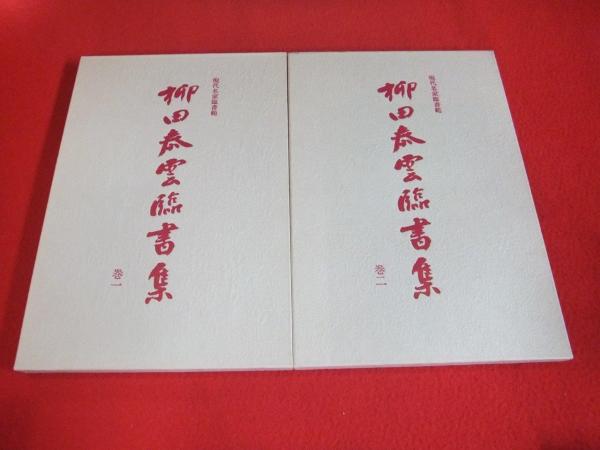 現代名家臨書範
柳田泰雲臨書集
巻一
現代名家臨書範
柳田泰雲臨書集
巻二